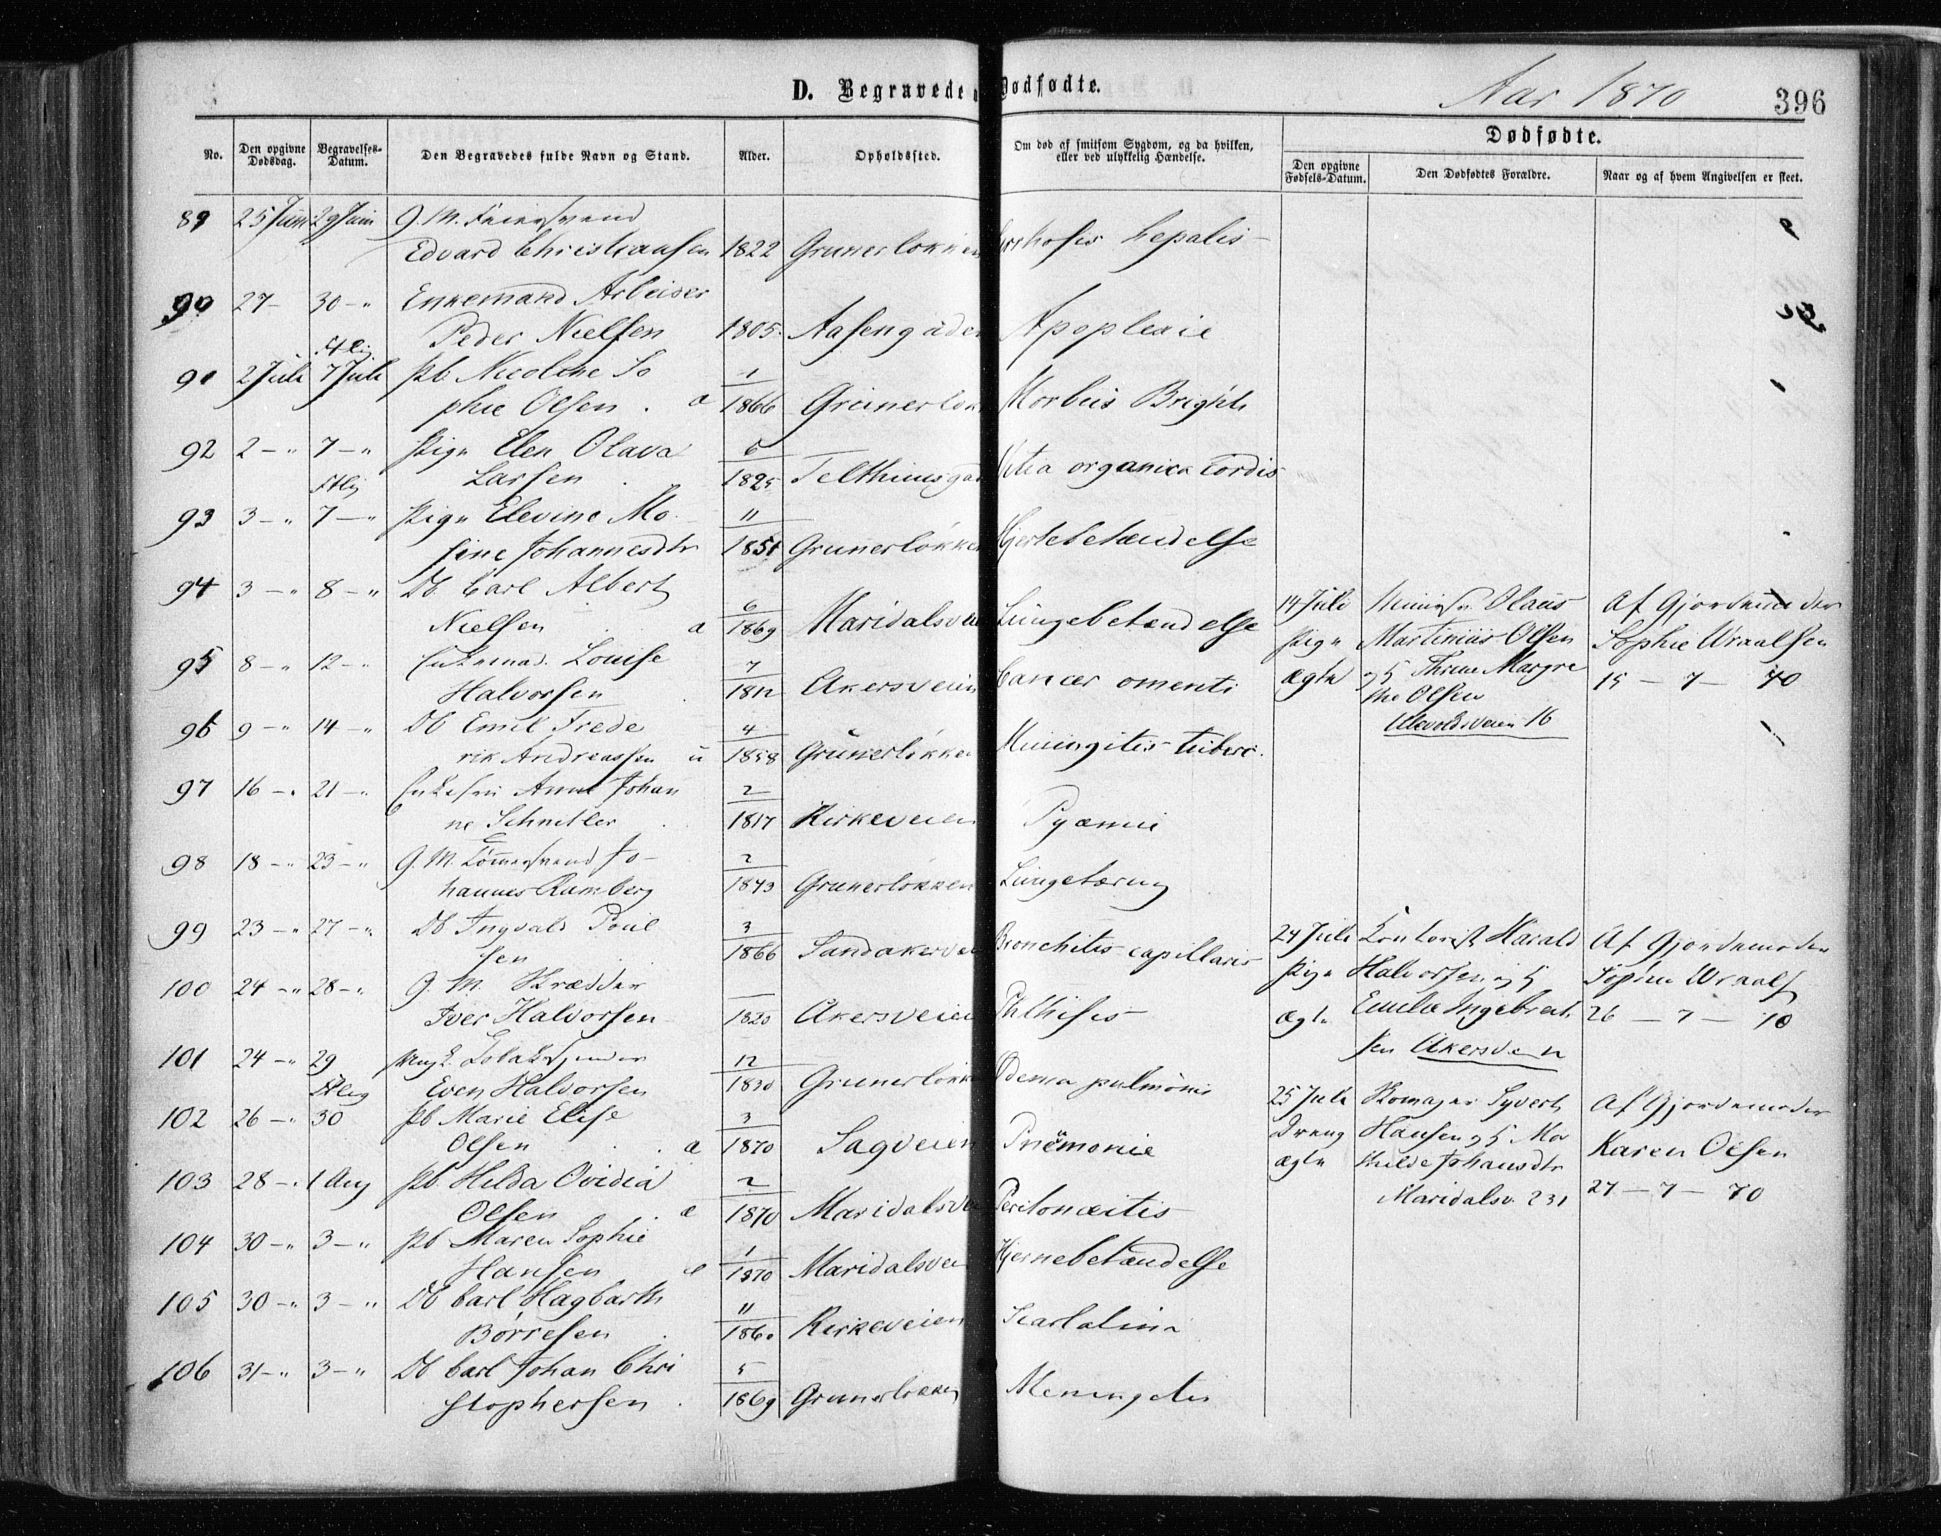 D. Begravede o Dødfødte. Aar 1870 396
No. Den opgivne Dødsdag. Begravelses-Datum. Den Begravedes fulde Navn og Stand. Alder. Opholdssted. Om død af smitsom Sygdom, og da hvilken, eller ved ulykkelig Hændelse.
Dødfødte.
Den opgivne Fødsels-Datum. Den Dødfødtes Forældre. Naar og af hvem Angivelsen er skeet.
89 25 Juni 29 Juni G. M.
Edvard Christiansen 1822 Grunerløkken hepatis
90 27 - 30 - " Enkemand Arbeider
Peder Nielsen 1805 Aasengaden Apoplexie
91 2 Juli 7 Juli Pb. Nicoline So
phie Olsen . a 1/1866 Grünerløkk Morbus Brighti
92 2 - " 7 - " Pige Elen Olava
Larsen . 6/1825 Telthusgad Vitia organica cordis
93 3 - " 7 - " Pige Elevine Mo
sine Johannesdtr 11/1851 Grunerløkken Hjertebetændelse
94 3 - " 8 - " Db. Carl Albert
Nielsen a 6/1869 Maridalsvei Lungebetændelse
95 8 - " 12 - " Louise
Halvorsen . 7/1812 Akersveien Cancer omenti
96 9 - " 14 - " Db Emil Frede
rik Andreassen u 4/1858 Grünerløkken Meningitis tuberc.
97 16 - " 21 - " Anne Johan
ne Schnitler . 2/1817 Kirkeveien Pyæmie
98 18 - " 23 - " G. M. Tømmersvend Jo-
hannes Ramberg 2/1843 Grunerløkken Lungetæring
99 23 - " 27 - " Db Ingvald Poul
sen . 3/1866 Sandakervei Bronchitis capillaris
100 24 - " 28 - " G. M. Skrædder
Iver Halvorsen 1820 Akersveien Phthisis
101 24 - " 29 Ungk.
Even Halvorsen 12/1830 Grunerløkke Ødema pulmonis
102 26 - " 30 Pb Marie Elise
Olsen . a 3/1870 Sagveien Pneumonie
103 28 - " 1 Aug Pb. Hilda Ovidia
Olsen . æ 2/1870 Maridalsvei Peritonæitis
104 30 - " 3 - " Pb Maren Sophie
Hansen æ 1/1870 Maridalsvei Hjernebetændelse
105 30 - " 3 - " Db Carl Hagbarth
Børresen . 11/1860 Kirkeveien Scarlatina
106 31 - " 3 - " Db Carl Johan Chri
stophersen . 5/1869 Grunerløkken Meningitis
14 Juli Olaus Af Gjordemoder
Pige Martinius Olsen Sophie Wraalsen
ægte og H Thrine Margre 15 - 7 - 70
the Olsen
Ullevoldsveien 16
24 Juli Kontorist Harald Af Gjordemoder
Pige Halvorsen og H Sophie Wraals
ægte Emilie Ingebret 26 - 7 - 70
sen Akersvein
25 Juli Skomager Syvert Af Gjordemoder
Dreng Hansen og H Ma Karen Olsen
ægte thilde Johansdtr 27 - 7 - 70
Maridalsv. 231